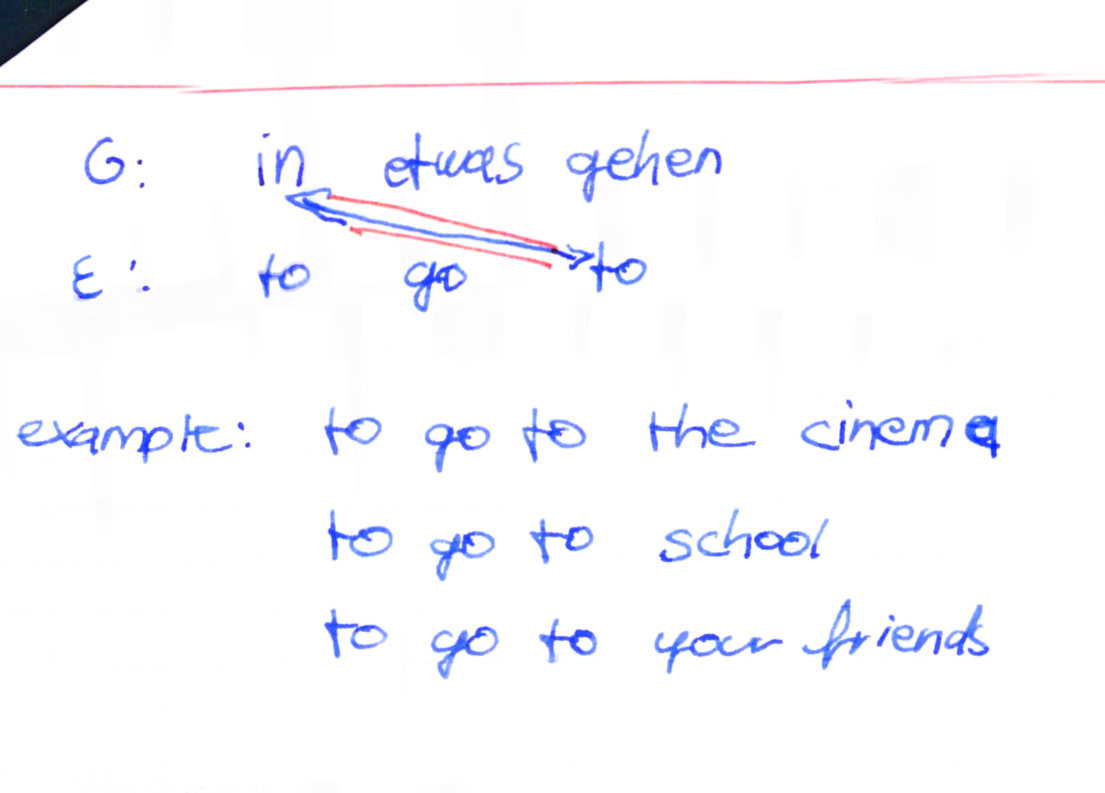 G: in etwas gehen
E: to go to
example: to go to the cinema
to go to school
to go to your friends